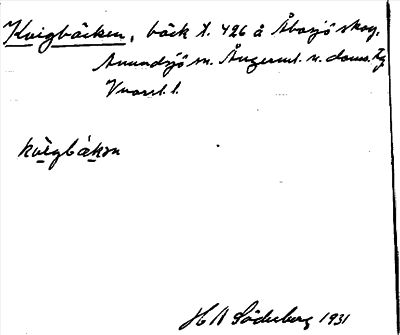 Kvigbäcken, bäck X. 426 å Åbosjö skog,
Anundsjö sn. Ångerml. n. doms. Lg
Vnorrl. l.
kvigbäkɘn
H A Söderberg 1931